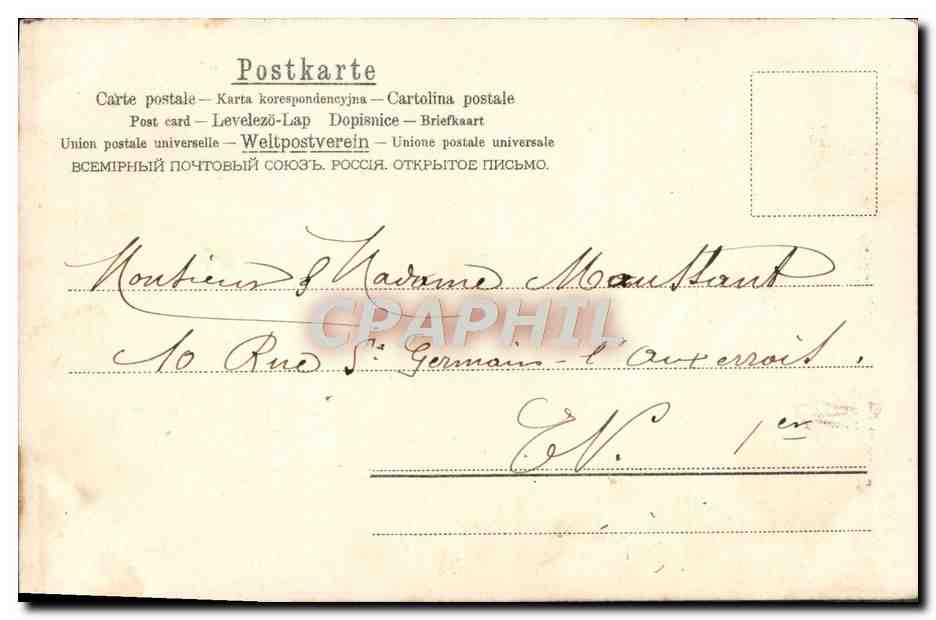 Postkarte
Carte postale — Karta korespondencyjna — Cartolina postale
Post card — Levelező-Lap Dopisnice — Briefkaart
Union postale universelle — Weltpostverein — Unione postale universale
ВСЕМІРНЫЙ ПОЧТОВЫЙ СОЮЗЪ. РОССІЯ. ОТКРЫТОЕ ПИСЬМО.
Monsieur & Madame Maussant
CPAPHIL
10 Rue St Germain-l'auxerrois.
EV. 1er